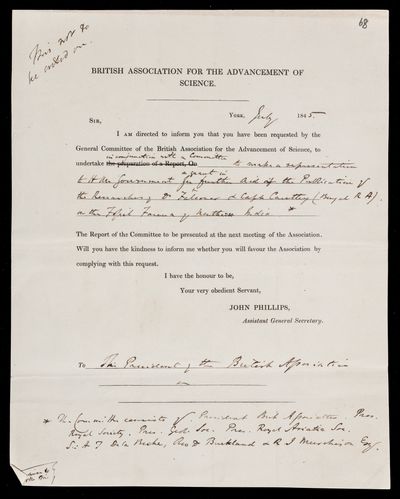 68
This not to
be acted on.
BRITISH ASSOCIATION FOR THE ADVANCEMENT OF
SCIENCE.
YORK, July 1845.
SIR,
I AM directed to inform you that you have been requested by the
General Committee of the British Association for the Advancement of Science, to
in conjunction with a Committee
undertake the preparation of a Report, On to make a representation
to H M Government
for further aid in the Publication of
the Researches of Dr Falconer & Capt Cautley (Bengal R A).
on the Fossil Fauna of Northern India *
The Report of the Committee to be presented at the next meeting of the Association.
Will you have the kindness to inform me whether you will favour the Association by
complying with this request.
I have the honour to be,
Your very obedient Servant,
JOHN PHILLIPS,
Assistant General Secretary.
To The President of the British Association
* The Committee consists of President Brit Association. Pres.
Royal Society. Pres. Geol. Soc. Pres. Royal Asiatic Soc.
Sir H T De la Beche, Rev Dr Buckland & R I Murchison Esq